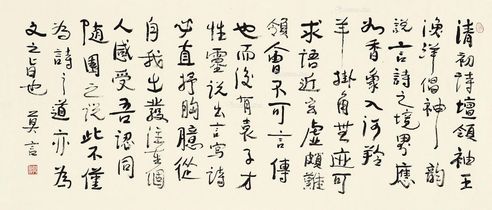 清初詩壇領袖王
漁洋倡神韻
說言詩之境界應
如香象入河羚
羊掛角無迹可
求語近玄虛頗難
領會不可言傳
也而後有袁子才
性靈說出言寫詩
必直抒胸臆從
自我出發注重個
人感受吾認同
隨園之說此不僅
為詩之道亦為
文之旨也 莫言